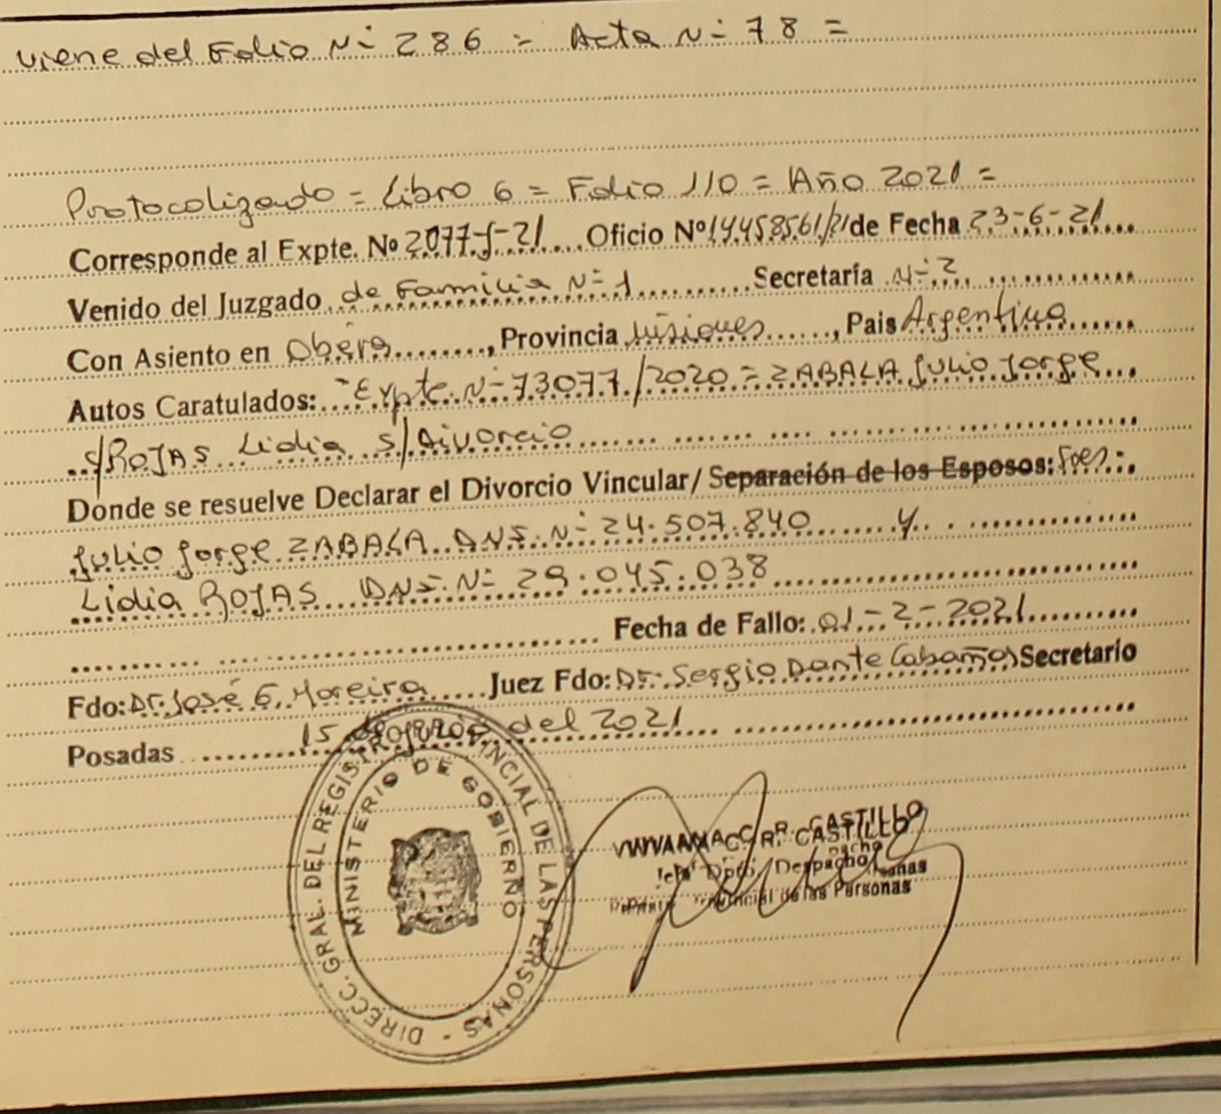 viene del Folio Nº 286 = Acta Nº 78 =
Protocolizado = Libro 6 = Folio 110 = Año 2021 =
Corresponde al Expte. Nº 2077-J-21 Oficio Nº 14458561/21 de Fecha 23-6-21
Venido del Juzgado de Familia Nº 1 Secretaría Nº 2
Con Asiento en Oberá, Provincia Misiones, Pais Argentina
Autos Caratulados: "Expte Nº 73077/2020 = ZABALA Julio Jorge
c/ROJAS Lidia s/Divorcio
Donde se resuelve Declarar el Divorcio Vincular/ Separación de los Esposos:
Julio Jorge ZABALA DNI. Nº 24.507.840 y
Lidia ROJAS DNI. Nº 29.045.038
Fecha de Fallo: 01-2-2021
Fdo: Dr. José G. Moreira Juez Fdo: Dr. Sergio Dante Cabañas Secretario
Posadas 15 de Julio del 2021
DIRECC. GRAL. DEL REGISTRO PROVINCIAL DE LAS PERSONAS -
MINISTERIO DE GOBIERNO
C. R. CASTILLO
Jefa Dpto. Despacho
Provincial de las Personas